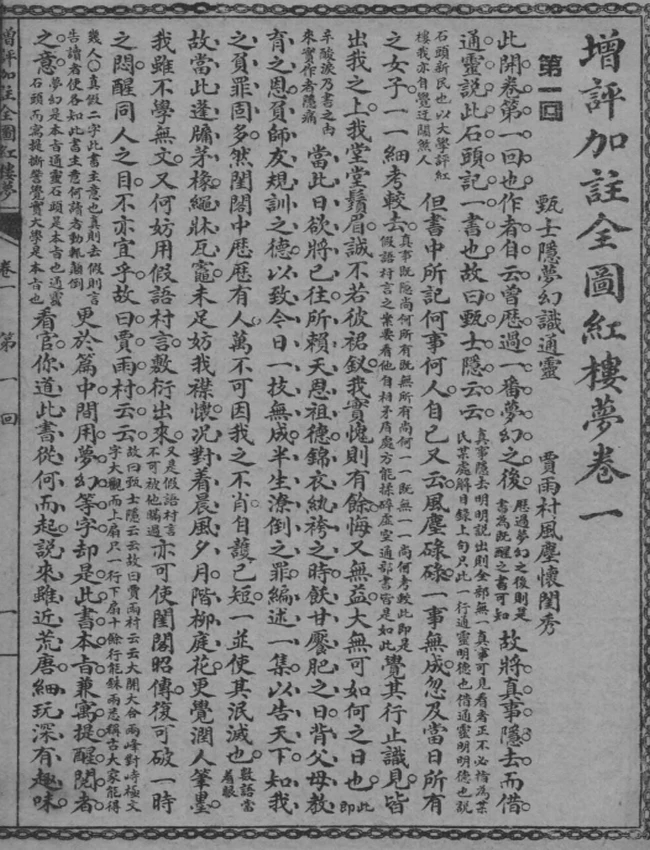 增評加註全圖紅樓夢卷一
第一回
甄士隱夢幻識通靈　賈雨村風塵懷閨秀
此開卷第一回也作者自云曾歷過一番夢幻之後歷過夢幻之後則是書為既醒之書可知故將真事隱去而借
通靈說此石頭記一書也故曰甄士隱云云真事隱去明明說出則全部無一真事可見看者正不必指為某氏某處解目錄上句只此一行通靈明德也借通靈明明德也說
石頭新民也以大學評紅樓我亦自覺迂闊煞人但書中所記何事何人自己又云風塵碌碌一事無成忽及當日所有
之女子一一細考較去真事既隱尚何所有既無所有尚何一一既無一一尚何考較此即是假語村言之案要看他自相矛盾處方能揉碎虛空通部書皆是如此覺其行止識見皆
出我之上我堂堂鬚眉誠不若彼裙釵我實愧則有餘悔又無益大無可如何之日也此即
辛酸淚乃書之由來實作者隱痛當此日欲將已往所賴天恩祖德錦衣紈袴之時飫甘饜肥之日背父母教
育之恩負師友規訓之德以致今日一技無成半生潦倒之罪編述一集以告天下知我
之負罪固多然閨閣中歷歷有人萬不可因我之不肖自護已短一並使其泯滅也數語當着眼
故當此蓬牖茅椽繩牀瓦竈未足妨我襟懷況對着晨風夕月階柳庭花更覺潤人筆墨
我雖不學無文又何妨用假語村言敷衍出來又是假語村言不可被他瞞過亦可使閨閣昭傳復可破一時
之悶醒同人之目不亦宜乎故曰賈雨村云云故曰甄士隱云云故曰賈雨村云云大開大合兩峰對峙極文字大觀而上扇只一行下扇十餘行能銖兩悉稱古大家能得
幾人○真假二字此書主意也真則去假則言告讀者使各知此書主意何請者動輒顛倒更於篇中間用夢幻等字却是此書本旨兼寓提醒閱者
之意夢幻是本旨通靈石頭是本旨也通靈石頭而寓提撕警覺實大學是本旨也看官你道此書從何而起說來雖近荒唐細玩深有趣味
增評加註全圖紅樓夢　卷一　第一回　一